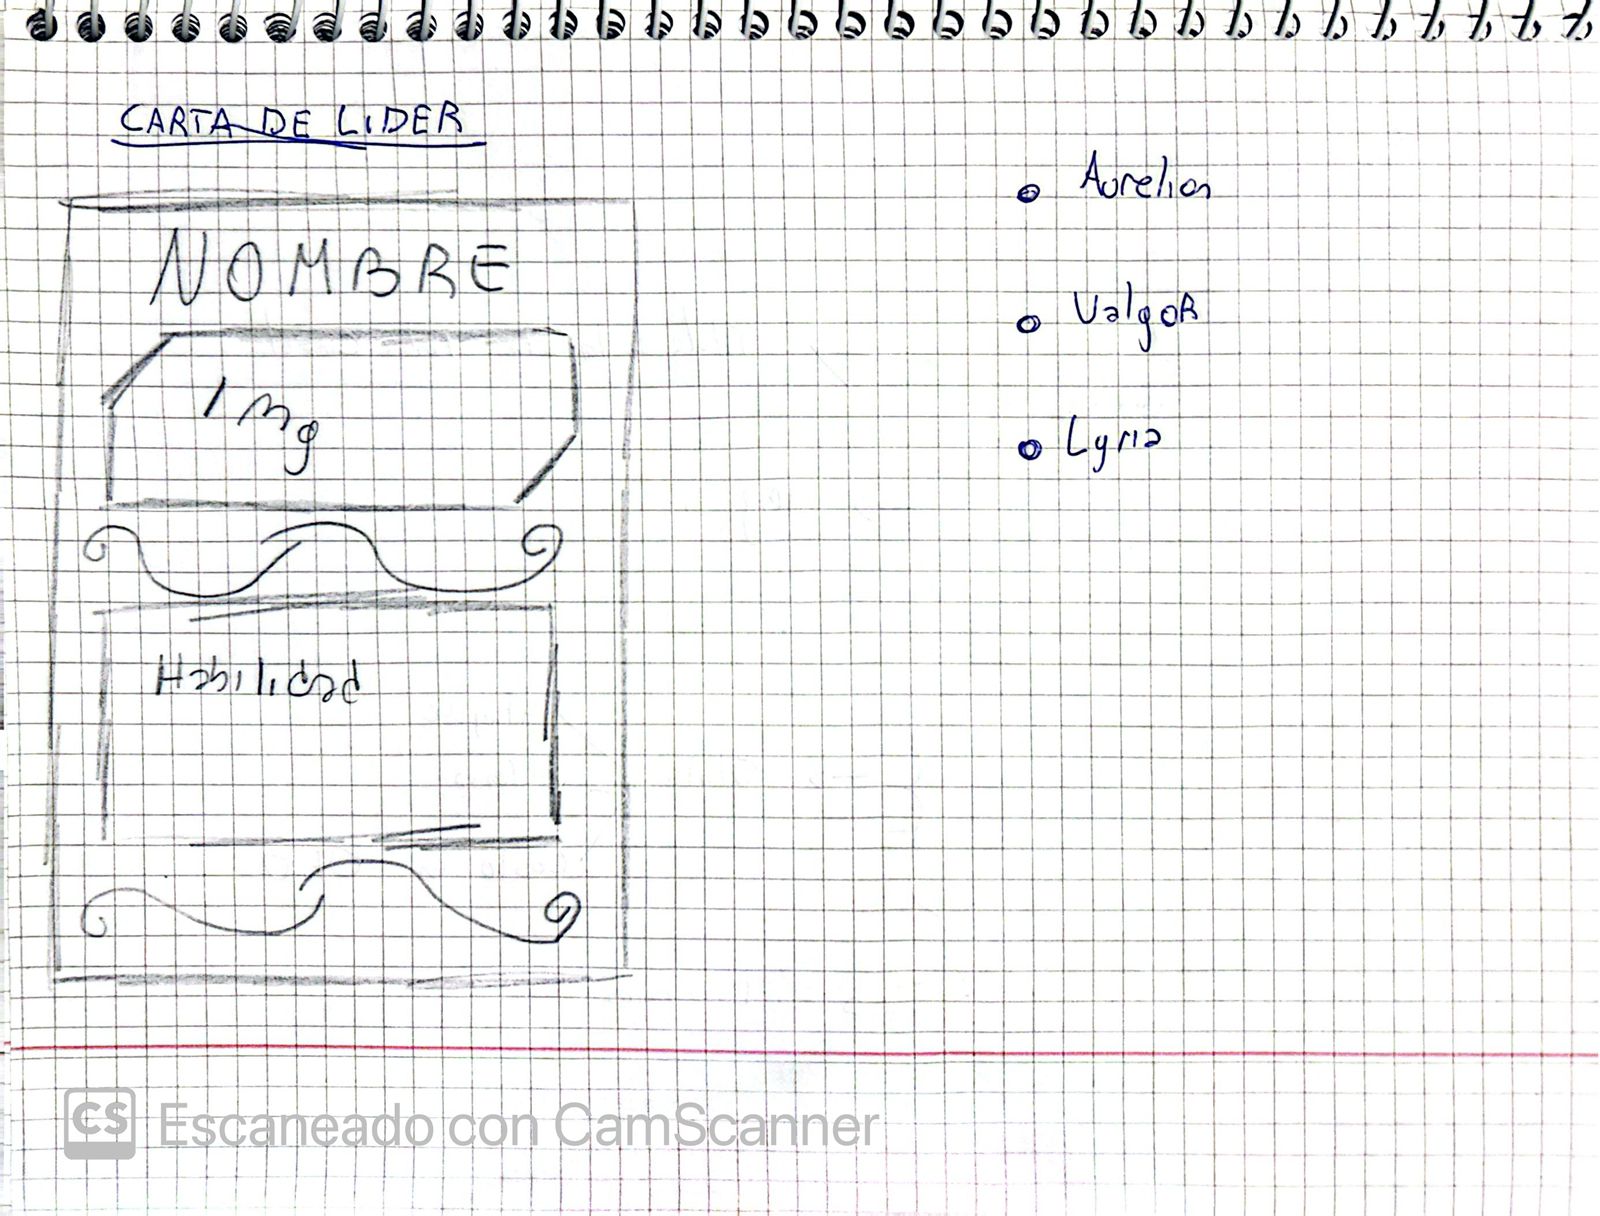 CARTA DE LIDER
NOMBRE
Img
Habilidad
Aurelion
ValgoR
Lyria
CS Escaneado con CamScanner